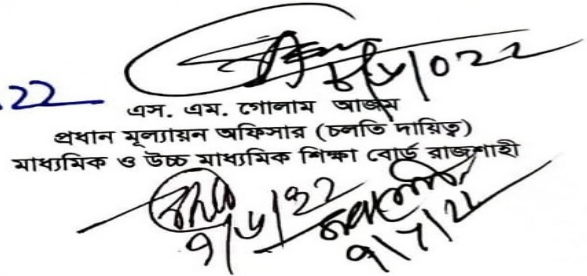 22
এস. এম. গোলাম আজম
প্রধান মূল্যায়ন অফিসার (চলতি দায়িত্ব)
মাধ্যমিক ও উচ্চ মাধ্যমিক শিক্ষা বোর্ড রাজশাহী